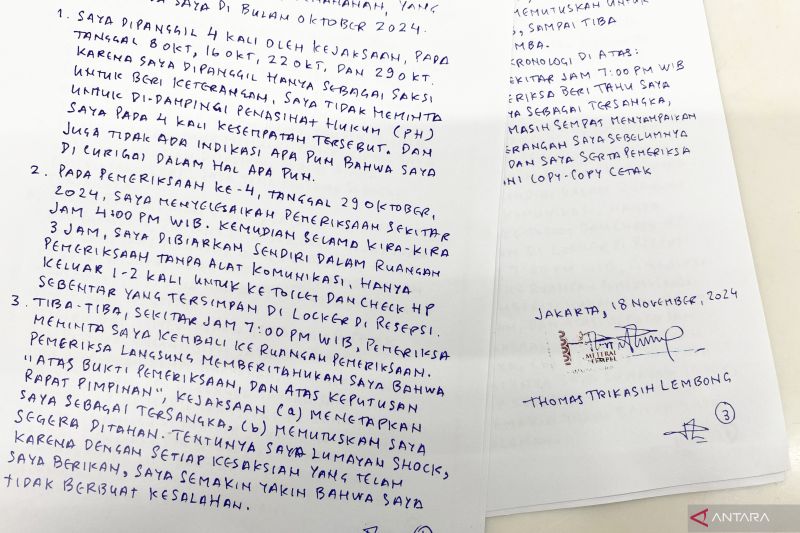 SAYA DI BULAN OKTOBER 2024.
1. SAYA DIPANGGIL 4 KALI OLEH KEJAKSAAN, PADA
TANGGAL 8 OKT, 16 OKT, 22 OKT, DAN 29 OKT.
KARENA SAYA DIPANGGIL HANYA SEBAGAI SAKSI
UNTUK BERI KETERANGAN, SAYA TIDAK MEMINTA
UNTUK DI-DAMPINGI PENASIHAT HUKUM (PH)
SAYA PADA 4 KALI KESEMPATAN TERSEBUT. DAN
JUGA TIDAK ADA INDIKASI APA PUN BAHWA SAYA
DI CURIGAI DALAM HAL APA PUN.
2. PADA PEMERIKSAAN KE-4, TANGGAL 29 OKTOBER,
2024, SAYA MENYELESAIKAN PEMERIKSAAN SEKITAR
JAM 4:00 PM WIB. KEMUDIAN SELAMA KIRA-KIRA
3 JAM, SAYA DIBIARKAN SENDIRI DALAM RUANGAN
PEMERIKSAAN TANPA ALAT KOMUNIKASI, HANYA
KELUAR 1-2 KALI UNTUK KE TOILET DAN CHECK HP
SEBENTAR YANG TERSIMPAN DI LOCKER DI RESEPSI.
3. TIBA-TIBA, SEKITAR JAM 7:00 PM WIB, PEMERIKSA
MEMINTA SAYA KEMBALI KE RUANGAN PEMERIKSAAN.
PEMERIKSA LANGSUNG MEMBERITAHUKAN SAYA BAHWA
"ATAS BUKTI PEMERIKSAAN, DAN ATAS KEPUTUSAN
RAPAT PIMPINAN", KEJAKSAAN (a) MENETAPKAN
SAYA SEBAGAI TERSANGKA, (b) MEMUTUSKAN SAYA
SEGERA DITAHAN. TENTUNYA SAYA LUMAYAN SHOCK,
KARENA DENGAN SETIAP KESAKSIAN YANG TELAH
SAYA BERIKAN, SAYA SEMAKIN YAKIN BAHWA SAYA
TIDAK BERBUAT KESALAHAN.
MEMUTUSKAN UNTUK
, SAMPAI TIBA
MBA.
RONOLOGI DI ATAS:
EKITAR JAM 7:00 PM WIB
ERIKSA BERI TAHU SAYA
YA SEBAGAI TERSANGKA,
MASIH SEMPAT MENYAMPAIKAN
ERANGAN SAYA SEBELUMNYA
DAN SAYA SERTA PEMERIKSA
NI COPY-COPY CETAK
JAKARTA, 18 NOVEMBER, 2024
METERAI
TEMPEL
THOMAS TRIKASIH LEMBONG
3
ANTARA